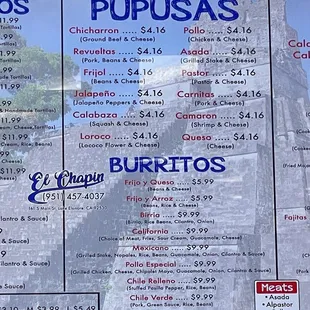 PUPUSAS
Chicharron ..... $4.16
(Ground Beef & Cheese)
Revueltas ..... $4.16
(Pork, Beans & Cheese)
Frijol ..... $4.16
(Beans & Cheese)
Jalapeña ..... $4.16
(Jalapeño Peppers & Cheese)
Calabaza ..... $4.16
(Squash & Cheese)
Loroco ..... $4.16
(Lococo Flower & Cheese)
Pollo ..... $4.16
(Chicken & Cheese)
Asada ..... $4.16
(Grilled Stake & Cheese)
Pastor ..... $4.16
(Pastor & Cheese)
Carnitas ..... $4.16
(Pork & Cheese)
Camaron ..... $4.16
(Shrimp & Cheese)
Queso ..... $4.16
(Cheese)
El Chapin
(951) 457-4037
BURRITOS
Frijo y Queso ..... $5.99
(Beans & Cheese)
Frijo y Arroz ..... $5.99
(Beans, Rice & Cheese)
Birria ..... $9.99
(Birria, Rice, Beans, Cilantro, Onion)
California ..... $9.99
(Choice of Meat, Fries, Sour Cream, Guacamole, Cheese)
Mexicano ..... $9.99
(Grilled Stake, Nopales, Rice, Beans, Guacamole, Onion, Cilantro & Sauce)
Pollo Especial ..... $9.99
(Grilled Chicken, Cheese, Chipolet Mayo, Guacamole, Onion, Cilantro & Sauce)
Chile Relleno ..... $9.99
(Stuffed Pasilla Pepper, Rice, Beans)
Chile Verde ..... $9.99
(Pork, Green Sauce, Rice, Beans)
Meats
•Asada
•Alpastor
Fajitas